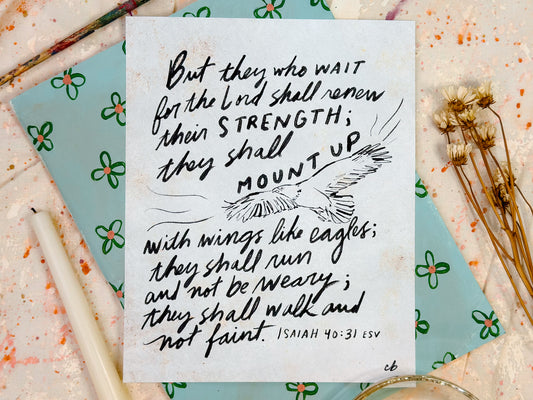 But they who WAIT
for the Lord shall renew
their STRENGTH;
they shall
MOUNT UP
with wings like eagles;
they shall run
and not be weary;
they shall walk and
not faint. ISAIAH 40:31 ESV
cb